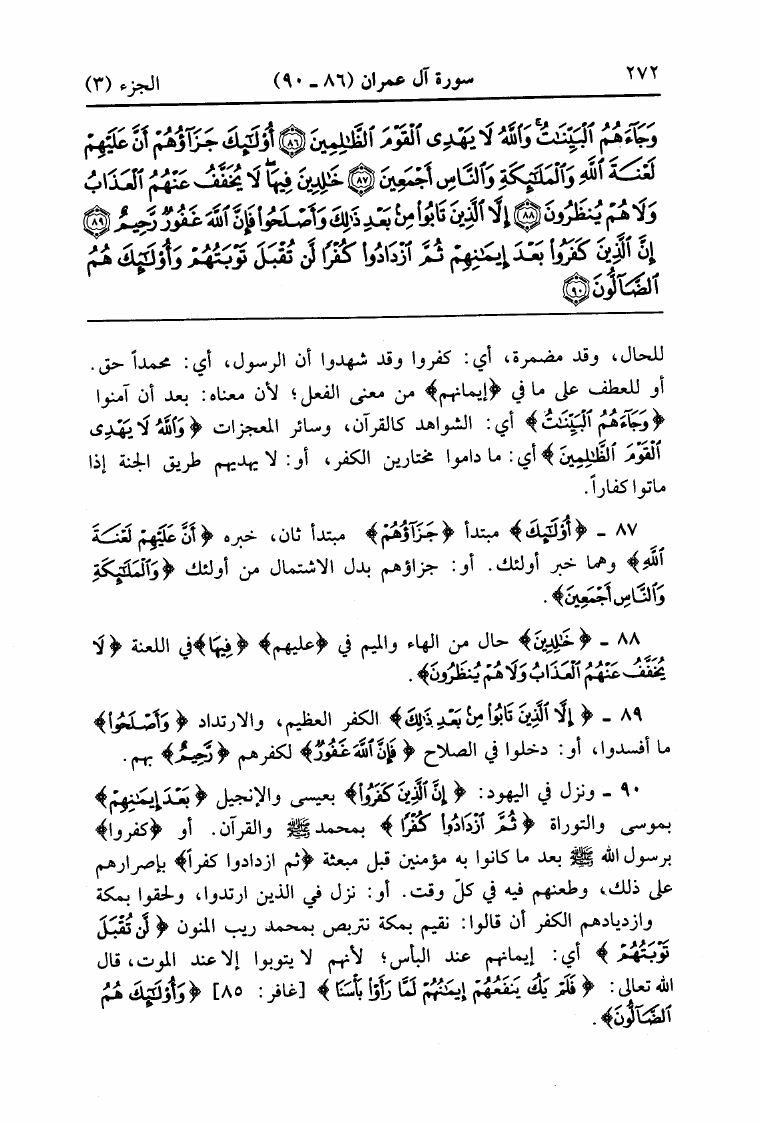 ٢٧٢ سورة آل عمران (٨٦ ـ ٩٠) الجزء (٣)
وَجَآءَهُمُ ٱلْبَيِّنَٰتُ ۚ وَٱللَّهُ لَا يَهْدِى ٱلْقَوْمَ ٱلظَّٰلِمِينَ ﴿٨٦﴾ أُوْلَٰٓئِكَ جَزَآؤُهُمْ أَنَّ عَلَيْهِمْ
لَعْنَةَ ٱللَّهِ وَٱلْمَلَٰٓئِكَةِ وَٱلنَّاسِ أَجْمَعِينَ ﴿٨٧﴾ خَٰلِدِينَ فِيهَا ۖ لَا يُخَفَّفُ عَنْهُمُ ٱلْعَذَابُ
وَلَا هُمْ يُنظَرُونَ ﴿٨٨﴾ إِلَّا ٱلَّذِينَ تَابُوا۟ مِنۢ بَعْدِ ذَٰلِكَ وَأَصْلَحُوا۟ فَإِنَّ ٱللَّهَ غَفُورٌ رَّحِيمٌ ﴿٨٩﴾
إِنَّ ٱلَّذِينَ كَفَرُوا۟ بَعْدَ إِيمَٰنِهِمْ ثُمَّ ٱزْدَادُوا۟ كُفْرًا لَّن تُقْبَلَ تَوْبَتُهُمْ وَأُوْلَٰٓئِكَ هُمُ
ٱلضَّآلُّونَ ﴿٩٠﴾
للحال، وقد مضمرة، أي: كفروا وقد شهدوا أن الرسول، أي: محمداً حق.
أو للعطف على ما في ﴿إيمانهم﴾ من معنى الفعل؛ لأن معناه: بعد أن آمنوا
﴿وَجَآءَهُمُ ٱلْبَيِّنَٰتُ﴾ أي: الشواهد كالقرآن، وسائر المعجزات ﴿وَٱللَّهُ لَا يَهْدِى
ٱلْقَوْمَ ٱلظَّٰلِمِينَ﴾ أي: ما داموا مختارين الكفر، أو: لا يهديهم طريق الجنة إذا
ماتوا كفاراً.
٨٧ ـ ﴿أُوْلَٰٓئِكَ﴾ مبتدأ ﴿جَزَآؤُهُمْ﴾ مبتدأ ثان، خبره ﴿أَنَّ عَلَيْهِمْ لَعْنَةَ
ٱللَّهِ﴾ وهما خبر أولئك. أو: جزاؤهم بدل الاشتمال من أولئك ﴿وَٱلْمَلَٰٓئِكَةِ
وَٱلنَّاسِ أَجْمَعِينَ﴾.
٨٨ ـ ﴿خَٰلِدِينَ﴾ حال من الهاء والميم في ﴿عليهم﴾ ﴿فِيهَا﴾ في اللعنة ﴿لَا
يُخَفَّفُ عَنْهُمُ ٱلْعَذَابُ وَلَا هُمْ يُنظَرُونَ﴾.
٨٩ ـ ﴿إِلَّا ٱلَّذِينَ تَابُوا۟ مِنۢ بَعْدِ ذَٰلِكَ﴾ الكفر العظيم، والارتداد ﴿وَأَصْلَحُوا۟﴾
ما أفسدوا، أو: دخلوا في الصلاح ﴿فَإِنَّ ٱللَّهَ غَفُورٌ﴾ لكفرهم ﴿رَّحِيمٌ﴾ بهم.
٩٠ ـ ونزل في اليهود: ﴿إِنَّ ٱلَّذِينَ كَفَرُوا۟﴾ بعيسى والإنجيل ﴿بَعْدَ إِيمَٰنِهِمْ﴾
بموسى والتوراة ﴿ثُمَّ ٱزْدَادُوا۟ كُفْرًا﴾ بمحمد ﷺ والقرآن. أو ﴿كفروا﴾
برسول الله ﷺ بعد ما كانوا به مؤمنين قبل مبعثة ﴿ثم ازدادوا كفراً﴾ بإصرارهم
على ذلك، وطعنهم فيه في كلّ وقت. أو: نزل في الذين ارتدوا، ولحقوا بمكة
وازديادهم الكفر أن قالوا: نقيم بمكة نتربص بمحمد ريب المنون ﴿لَّن تُقْبَلَ
تَوْبَتُهُمْ﴾ أي: إيمانهم عند البأس؛ لأنهم لا يتوبوا إلا عند الموت، قال
الله تعالى: ﴿فَلَمْ يَكُ يَنفَعُهُمْ إِيمَٰنُهُمْ لَمَّا رَأَوْا۟ بَأْسَنَا﴾ [غافر: ٨٥] ﴿وَأُوْلَٰٓئِكَ هُمُ
ٱلضَّآلُّونَ﴾.